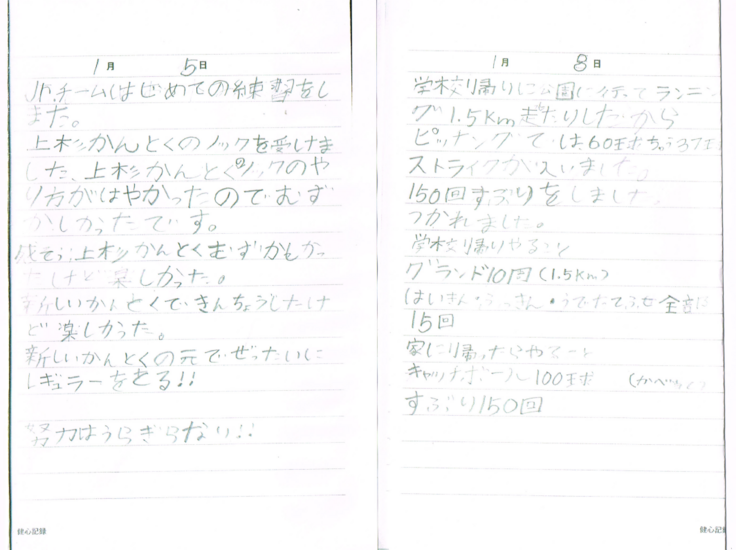 1月 5日
Jr.チームはじめての練習をし
ました。
上杉かんとくのノックを受けま
した、上杉かんとくのノックのや
り方がはやかったのでむず
かしかったです。
上杉かんとくむずかしかっ
たけど楽しかった。
新しいかんとくできんちょうしたけ
ど楽しかった。
新しいかんとくの元でぜったいに
レギュラーをとる!!
努力はうらぎらない!!
健心記録
1月 8日
学校帰りに公園に行ってランニン
グ1.5Km走たりしたから
ピッチングでは60球ちゅう37球
ストライクがはいました。
150回すぶりをしました。
つかれました。
学校帰りやること
グランド10周(1.5Km)
はいきん・ふっきん・うでたてふせ全部
15回
家に帰ったらやること
キャッチボール100球
すぶり150回
健心記録